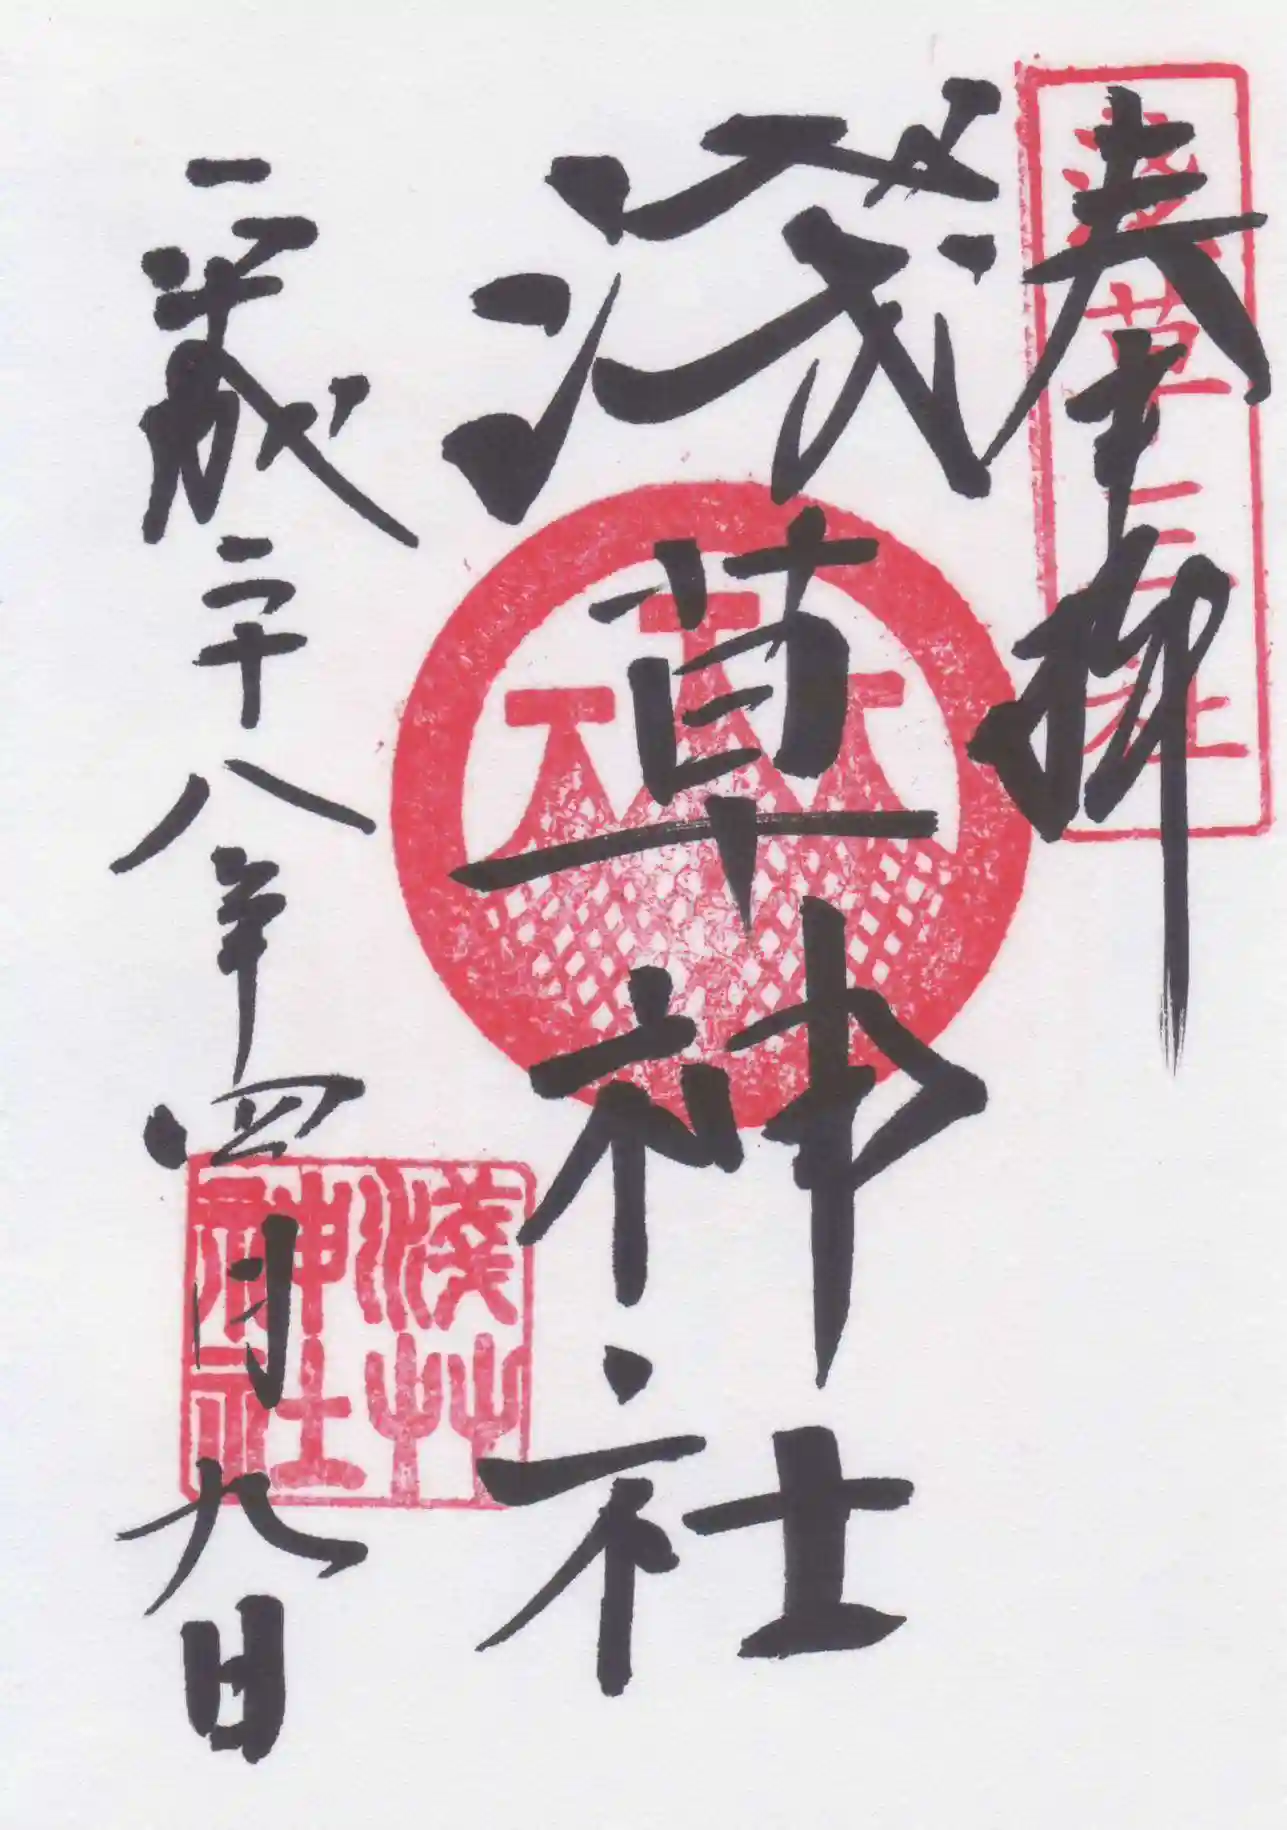 奉拝
浅草三社
淺草神社
平成二十八年四月九日
淺艸
神社